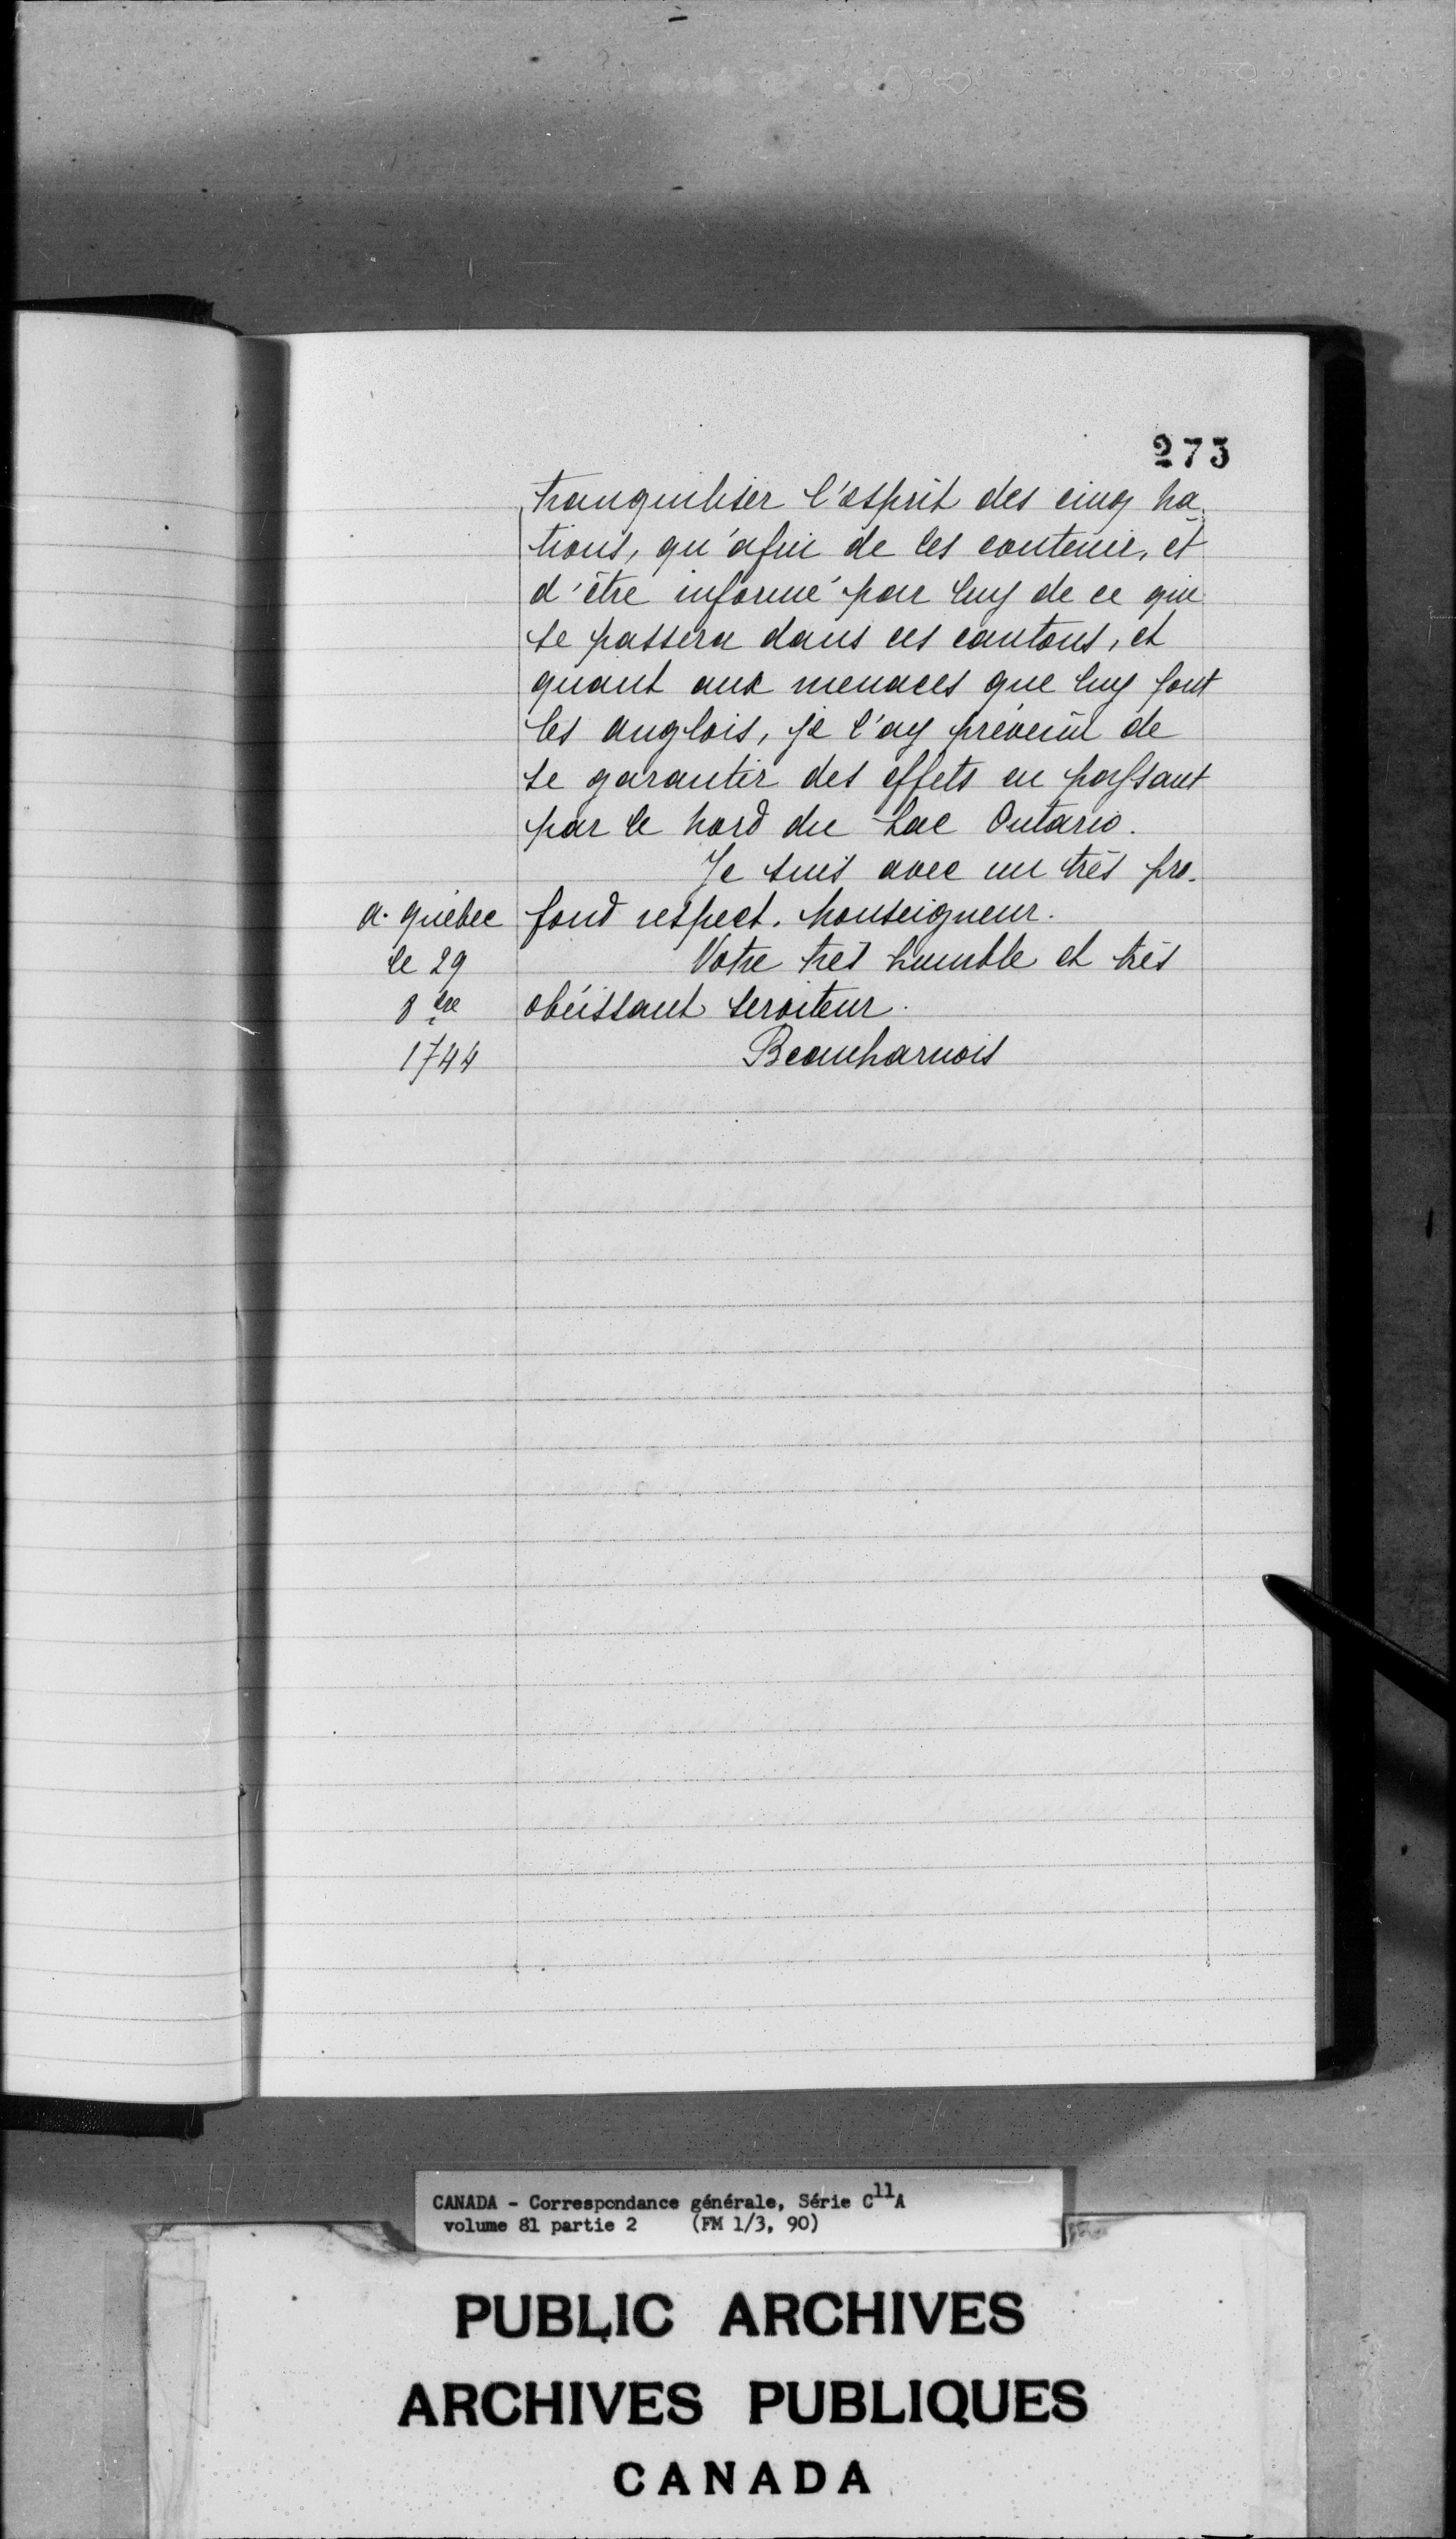 273
tranquiliser l'esprit des cinq na
tions, qu'afin de les contenir, et
d'être informé par luy de ce qui
se passera dans ces cantons, et
quant aux menaces que luy font
les anglois, je l'ay prévenu de
se garantir des effets en passant
par le nord du Lac Ontario.
Je suis avec un très pro-
fond respect. Monseigneur.
Votre très humble et très
obéissant serviteur.
Beauharnois
A. québec
le 29
8bre
1744
CANADA - Correspondance générale, Série C11A
volume 81 partie 2 (FM 1/3, 90)
PUBLIC ARCHIVES
ARCHIVES PUBLIQUES
CANADA